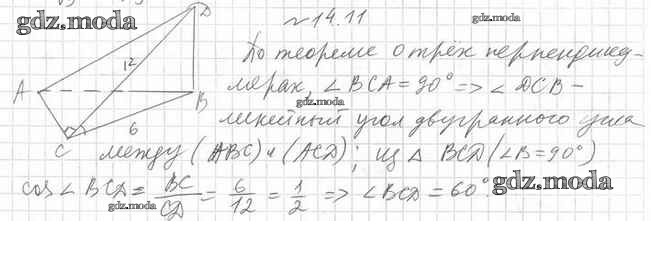 gdz.moda
№ 14.11
gdz.moda
D
12
A
B
C
6
По теореме о трёх перпендику-
лярах, ∠ BCA = 90° => ∠ DCB -
gdz.moda
линейный угол двугранного угла
между (ABC) и (ACD); из △ BCD (∠B = 90°)
cos ∠ BCD = BC/CD = 6/12 = 1/2 => ∠BCD = 60°.
gdz.moda
gdz.moda